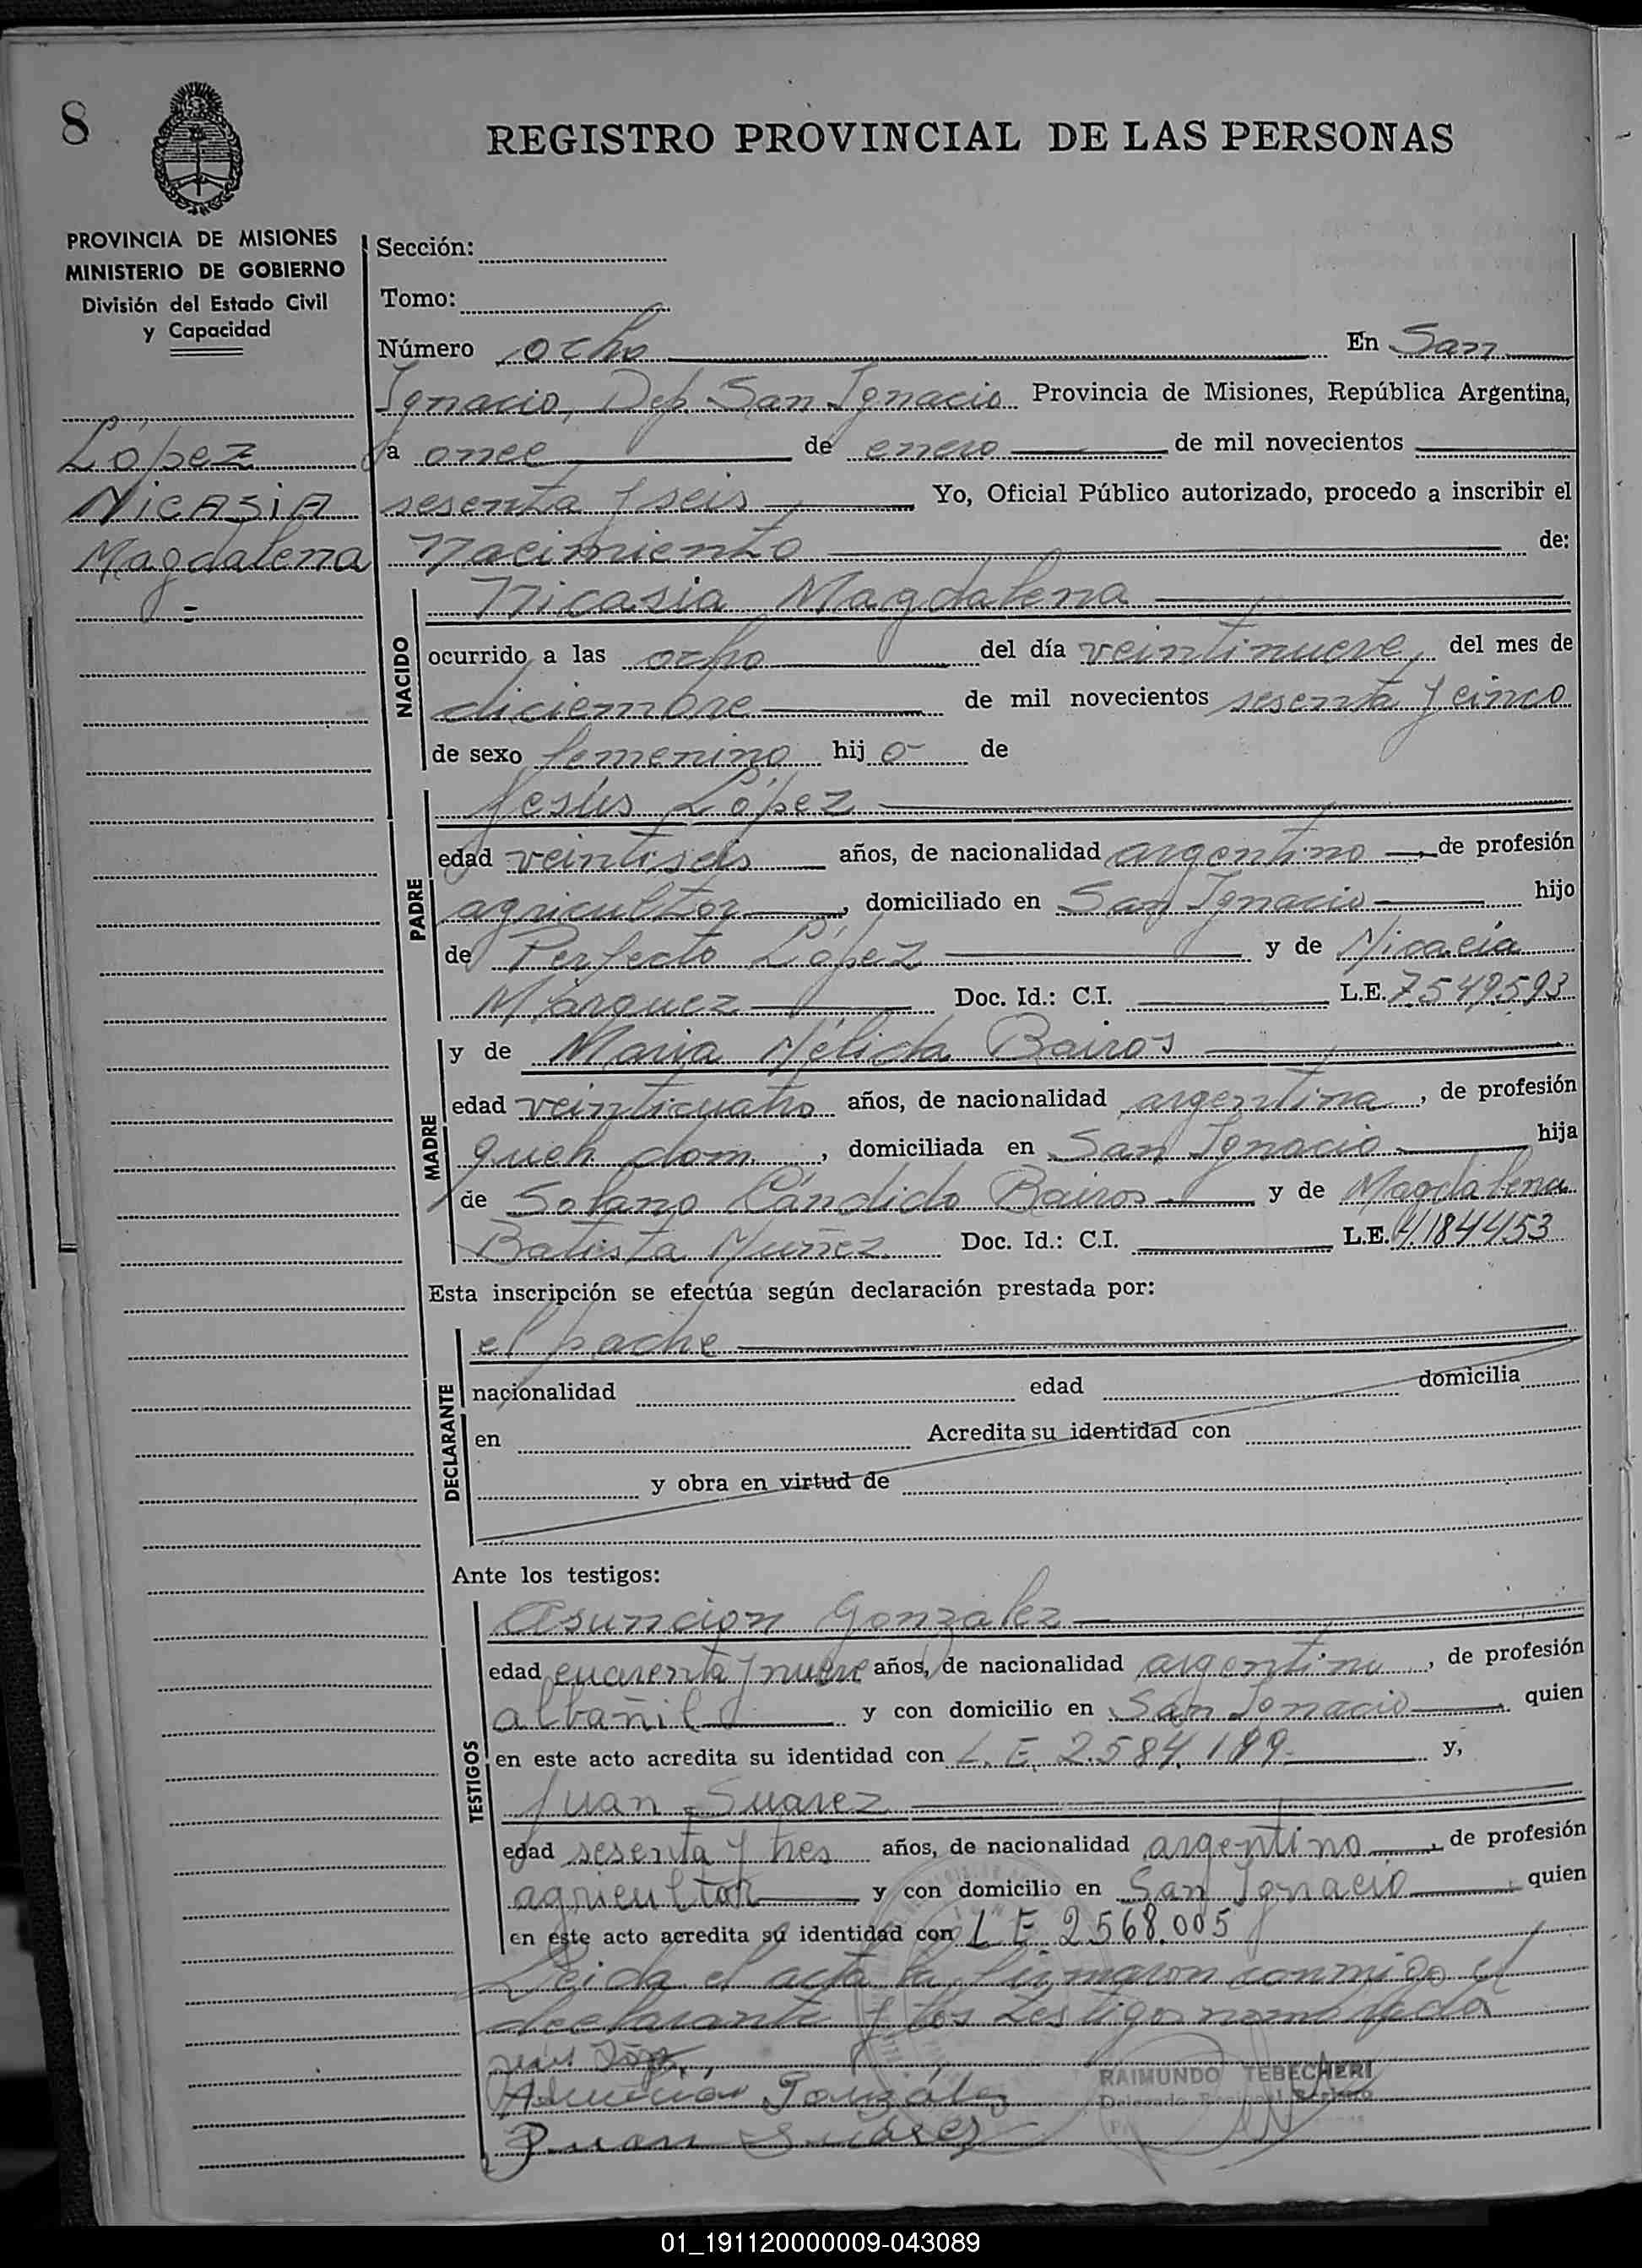 8
REGISTRO PROVINCIAL DE LAS PERSONAS
PROVINCIA DE MISIONES
MINISTERIO DE GOBIERNO
División del Estado Civil
y Capacidad
López
NICASIA
Magdalena
Sección:
Tomo:
Número ocho En San
Ignacio, Dep. San Ignacio Provincia de Misiones, República Argentina,
a once de enero de mil novecientos
sesenta y seis Yo, Oficial Público autorizado, procedo a inscribir el
nacimiento de:
NACIDO
Nicasia Magdalena
ocurrido a las ocho del día veintinueve, del mes de
diciembre de mil novecientos sesenta y cinco
de sexo femenino hij o de
PADRE
Jesús López
edad veintiseis años, de nacionalidad argentino, de profesión
agricultor, domiciliado en San Ignacio hijo
de Perfecto López y de Nicacia
Márquez Doc. Id.: C.I. L.E. 7549593
MADRE
y de María Nélida Bairos
edad veinticuatro años, de nacionalidad argentina, de profesión
queh dom., domiciliada en San Ignacio hija
de Solano Cándido Bairos y de Magdalena
Batista Muñez Doc. Id.: C.I. L.E. 4184453
Esta inscripción se efectúa según declaración prestada por:
DECLARANTE
el padre
nacionalidad edad domicilia
en Acredita su identidad con
y obra en virtud de
Ante los testigos:
TESTIGOS
Asunción González
edad cuarenta y nueve años, de nacionalidad argentino, de profesión
albañil y con domicilio en San Ignacio quien
en este acto acredita su identidad con L.E. 2.584.199 y,
Juan Suarez
edad sesenta y tres años, de nacionalidad argentino, de profesión
agricultor y con domicilio en San Ignacio quien
en este acto acredita su identidad con L E 2568.005
Leida el acta la firmaron conmigo el
declarante y los testigos
Asunción González
Juan Suárez
RAIMUNDO TEBECHERI
01_191120000009-043089